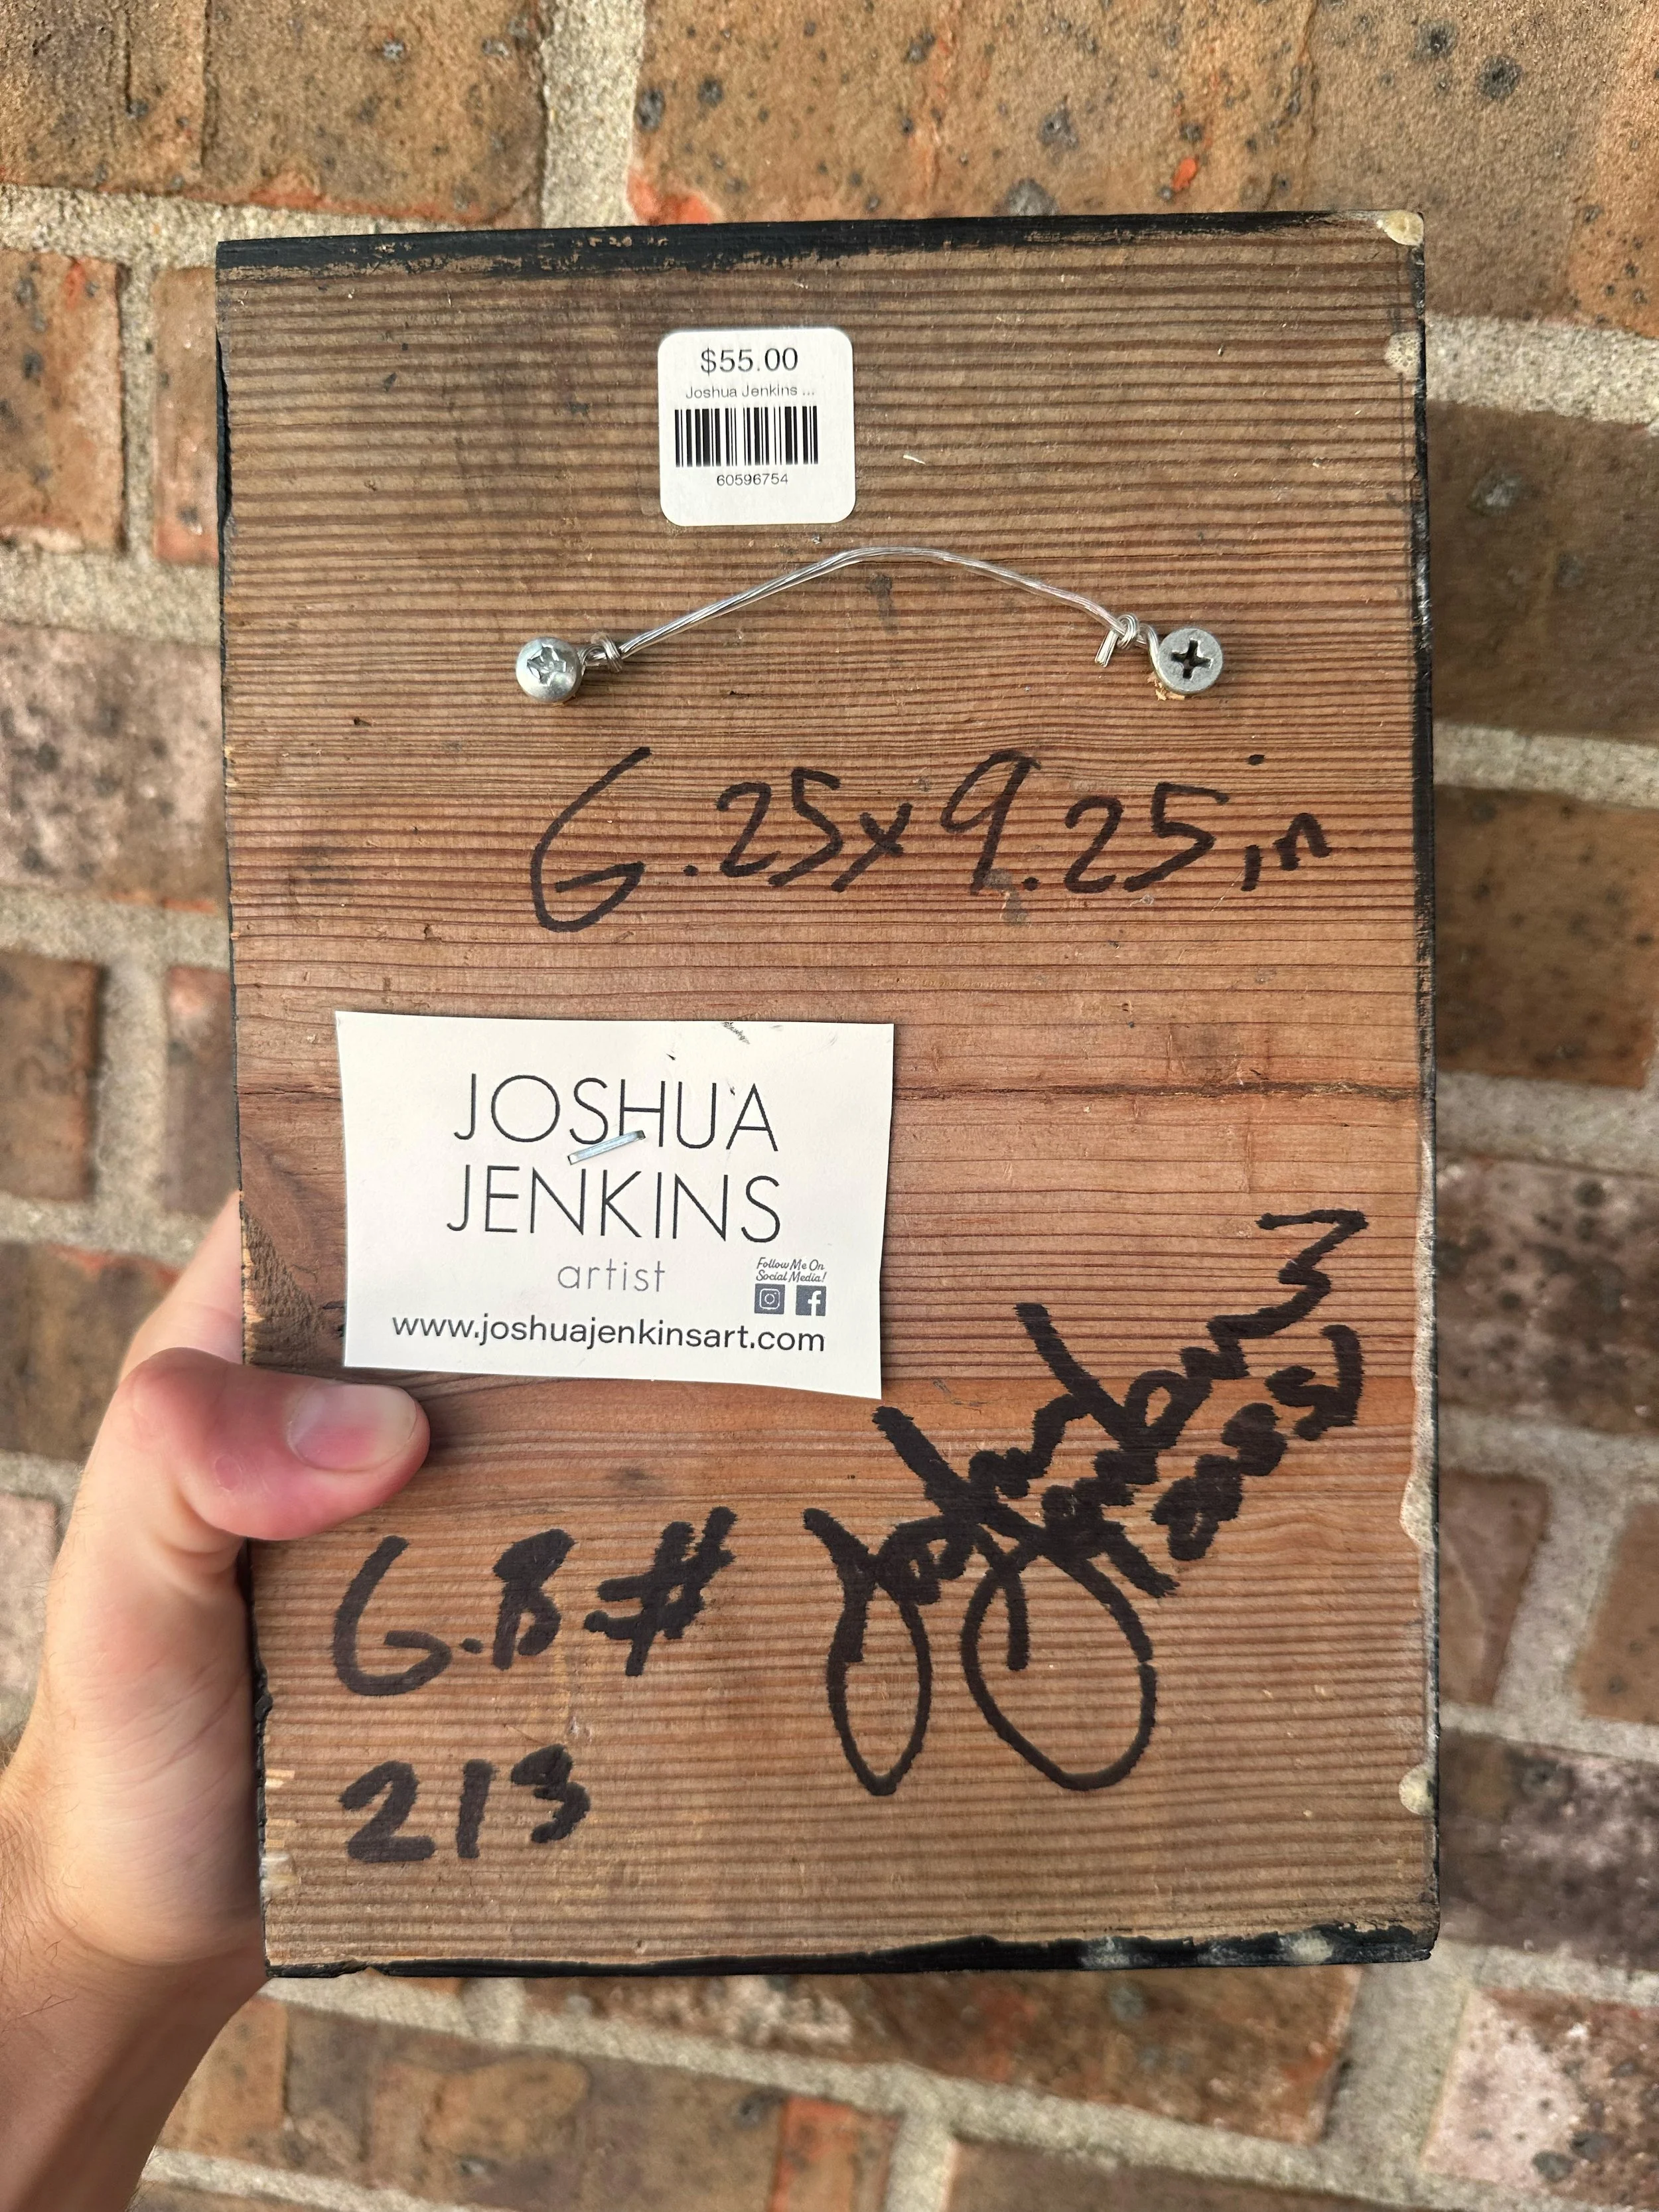 $55.00
Joshua Jenkins ...
60596754
6.25x9.25in
JOSHUA
JENKINS
artist
Follow Me On
Social Media!
www.joshuajenkinsart.com
G.B#
213
Joshua
Jenkins